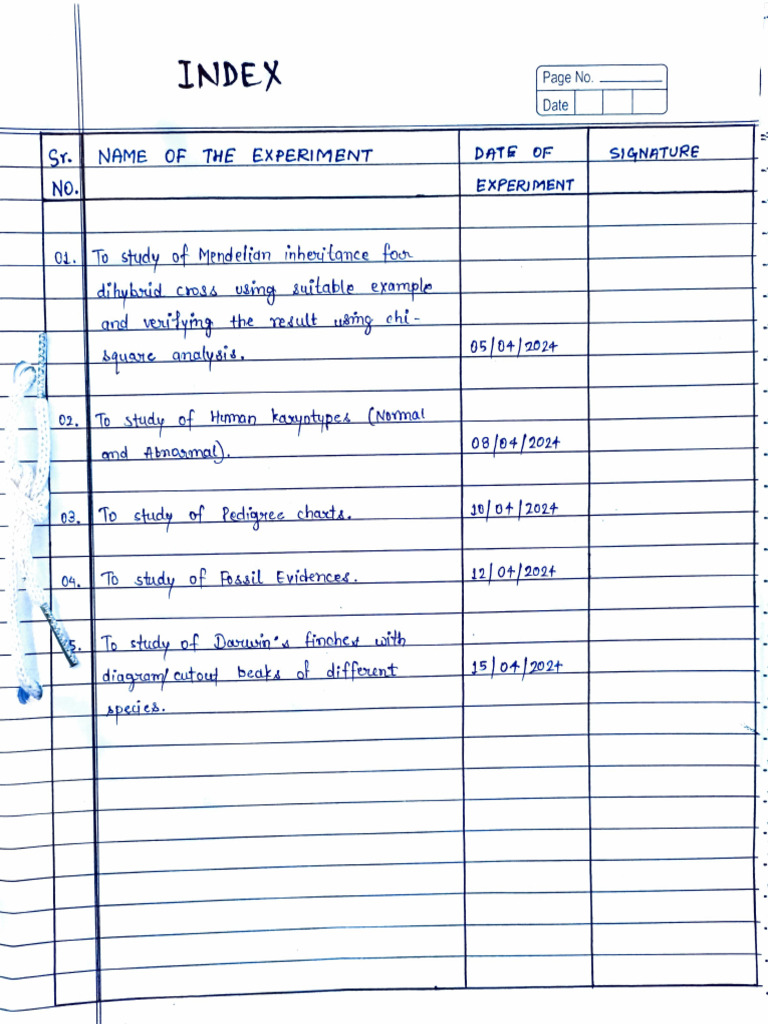 INDEX
Page No.
Date
Sr. NO.
NAME OF THE EXPERIMENT
DATE OF EXPERIMENT
SIGNATURE
01. To study of Mendelian inheritance four
dihybrid cross using suitable example
and verifying the result using chi-
square analysis. 05/04/2024
02. To study of Human karyotypes (Normal
and Abnormal). 08/04/2024
03. To study of Pedigree charts. 10/04/2024
04. To study of Fossil Evidences. 12/04/2024
5. To study of Darwin's finches with
diagram/cutout beaks of different 15/04/2024
species.